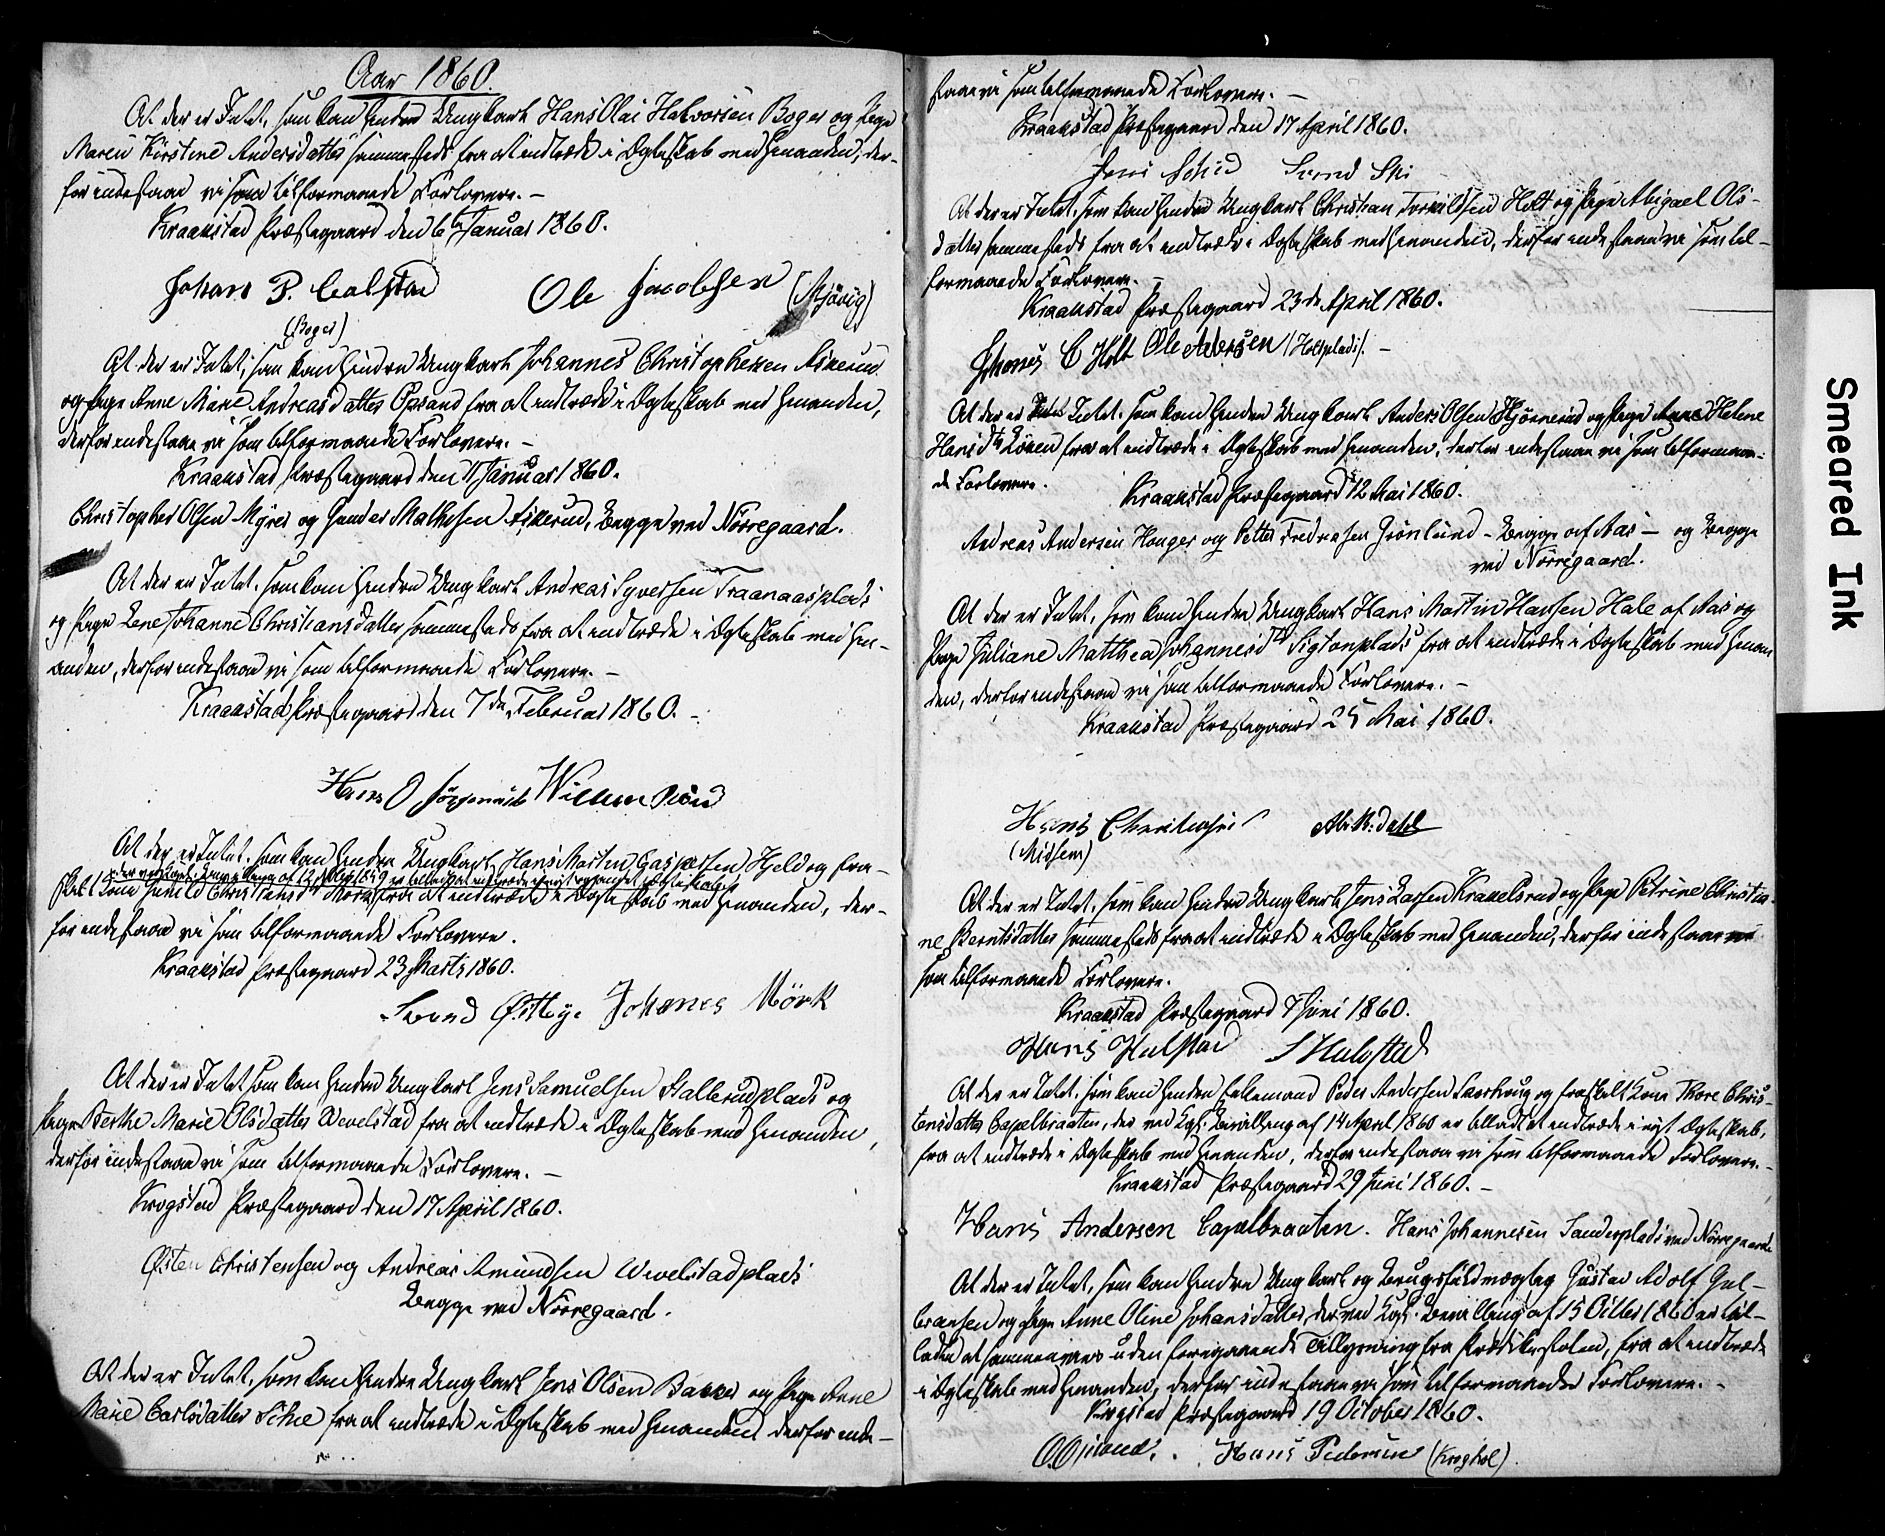 Aar 1860.
At der er Intet, som kan hindre Ungkarl Hans Olai Halvorsen Boger og Pige
Maren Kirstine Andersdatter sammesteds fra at indtræde i Ægteskab med hinanden, der-
for indestaae vi som tilformaaede Forlovere. -
Kraakstad Præstegaard den 6te Januar 1860.
Johan P. Ole Jacobsen
(Boger)
At der er Intet, som kan hindre Ungkarl Johannes Christophersen Askerud
og Pige Anne Marie Andreasdatter Opsand fra at indtræde i Ægteskab med hinanden,
derfor indestaae vi som tilformaaede Forlovere. -
Kraakstad Præstegaard den 11 Januar 1860.
Christopher Olsen Myrer og Gunder Mathisen Askerud, begge ved Nørregaard.
At der er Intet, som kan hindre Ungkarl Andreas Syversen Traanaasplads
og Pige Lene Johanne Christiansdatter sammesteds fra at indtræde i Ægteskab med hin-
anden, derfor indestaae vi som tilformaaede Forlovere. -
Kraakstad Præstegaard den 7de Februar 1860. -
Hans O
At der er Intet, som kan hindre Ungkarl Hans Martin Caspersen Hjeld og fra-
der ved Kongl. Bevilling af 12 1859 er tilladt at indtræde i nyt Ægteskab
skilt Kone Christensdr Mørk fra at indtræde i Ægteskab med hinanden, der-
for indestaae vi som tilformaaede Forlovere.
Kraakstad Præstegaard 23 Marts 1860.
Svend Østbye Johanes Mörk
At der er Intet som kan hindre Ungkarl Jens Samuelsen Hallerudplads og
Pige Berthe Marie Olsdatter Wevelstad fra at indtræde i Ægteskab med hinanden,
derfor indestaae vi som tilformaaede Forlovere. -
Krogstad Præstegaard den 17 April 1860.
Østen Christensen og Andreas Amundsen Wevelstadplads
begge ved Nørregaard.
At der er Intet, som kan hindre Ungkarl Jens Olsen Bakker og Pige Anne
Marie Carlsdatter Schie fra at indtræde i Ægteskab med hinanden derfor inde-
staae vi som tilformaaede Forlovere. -
Kraakstad Præstegaard den 17 April 1860.
Svend Ski
At der er Intet, som kan hindre Ungkarl Christian Torkildsen Holt og Pige Abigael Ols-
datter sammesteds fra at indtræde i Ægteskab med hinanden, derfor indestaae vi som til-
formaaede Forlovere. -
Kraakstad Præstegaard 23de April 1860.
C Holt Ole Adersen /Holtplads/. -
At der er Intet, som kan hindre Ungkarl Anders Olsen Hjørnerud og Pige Anne Helene
Hansdtr Løken fra at indtræde i Ægteskab med hinanden, derfor indestaae vi som tilformaae-
de Forlovere.
Kraakstad Præstegaard 12 Mai 1860.
Andreas Andersen Hauger og Petter Fredriksen Grønlund - begge af Aas - og begge
ved Nørregaard.
At der er Intet, som kan hindre Ungkarl Hans Martin Hansen Hale af Aas og
Pige Juliane Matthea Johannesdtr fra at indtræde i Ægteskab med hinan
den, derfor indestaae vi som tilformaaede Forlovere. -
Kraakstad Præstegaard 25 Mai 1860.
Hans
At der er Intet, som kan hindre Ungkarl Jens Larsen Krakelsrud og Pige Petrine Christia-
ne Berntsdatter sammesteds fra at indtræde i Ægteskab med hinanden, derfor indestaae vi
som tilformaaede Forlovere.
Kraakstad Præstegaard 7 Juni 1860.
Hans
At der er Intet, som kan hindre Enkemand Peder Andersen og fraskilt Kone Thore Chris-
tensdatter Capelbraaten, der ved Kgl. Bevilling af 14 April 1860 er tilladt at indtræde i nyt Ægteskab,
fra at indtræde i Ægteskab med hinanden, derfor indestaae vi som tilformaaede Forlovere. -
Kraakstad Præstegaard 29 Juni 1860. -
Hans Andersen Capelbraaten. Hans Johannesen Sanderplads ved Nørregaard
At der er Intet, som kan hindre Ungkarl og Brugsfuldmægtig Gustav Adolf Gul-
bransen og Pige Anne Oline Johansdatter, der ved Kgl. Bevilling af 15 1860 er til-
ladte at sammenvies uden foregaaende Tillysning fra Prædikestolen, fra at indtræde
i Ægteskab med hinanden, derfor indestaae vi som tilformaaede Forlovere. -
Krogstad Præstegaard 19 October 1860.
Hans Pedersen (Kroghol).
Smeared Ink